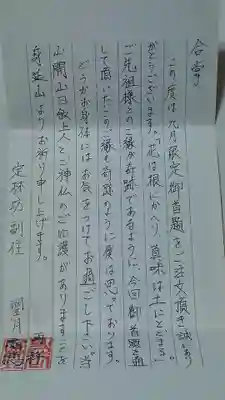 合掌
この度は九月限定御首題をご注文頂き誠にあり
がとうございます。「花は根にかへり真味は土にとどまる」
ご先祖様とのご縁が奇跡であるように、今回御首題を通
して頂いたこのご縁も奇跡のように僕は思っております。
どうかお身体にはお気をつけてお過ごし下さい。当
山開山日敏上人とご神仏のご加護がありますことを
身延山よりお祈り申し上げます。
定林坊副住 望月